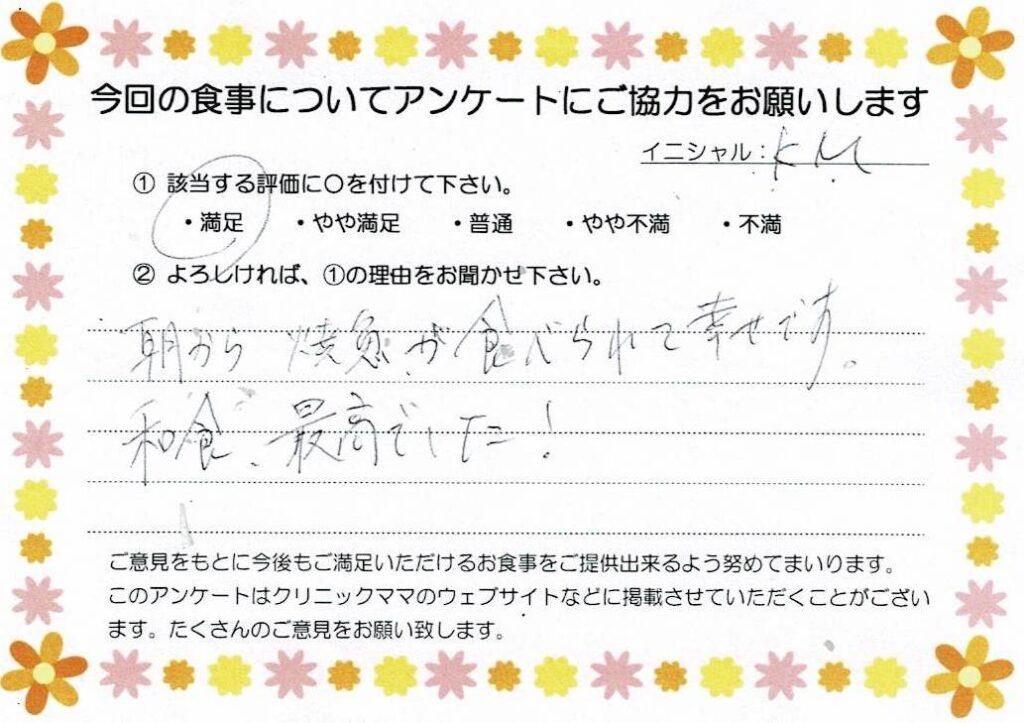 今回の食事についてアンケートにご協力をお願いします
イニシャル：K M
① 該当する評価に〇を付けて下さい。
・満足 ・やや満足 ・普通 ・やや不満 ・不満
② よろしければ、①の理由をお聞かせ下さい。
朝から 焼魚が食べられて幸せです。
和食、最高でした！
ご意見をもとに今後もご満足いただけるお食事をご提供出来るよう努めてまいります。
このアンケートはクリニックママのウェブサイトなどに掲載させていただくことがござい
ます。たくさんのご意見をお願い致します。